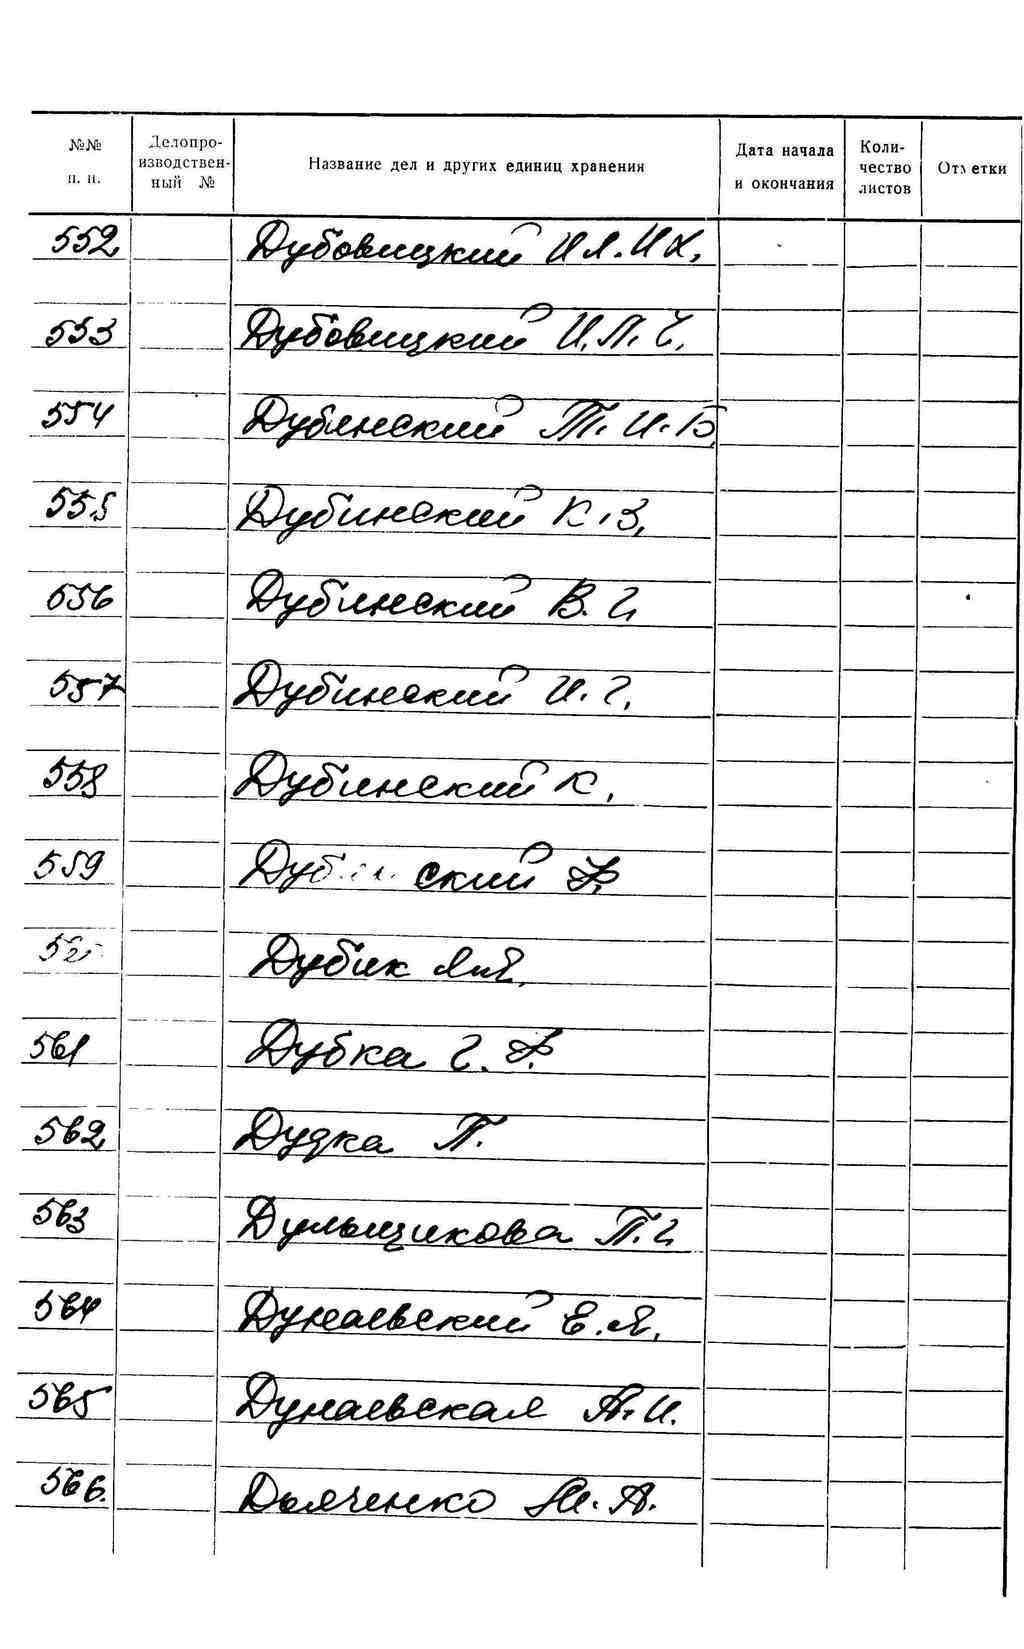 №№ п. п.
Делопроизводственный №
Название дел и других единиц хранения
Дата начала и окончания
Количество листов
Отметки
552 Дубовицкий
553 Дубовицкий И.П.
554 Дубинский Т. И.
555 Дубинский К.З.
556 Дубинский В. Г.
557 Дубинский И. Г.
558 Дубинский К.
559 Дуб ский Ф.
Дубик
561 Дубка Г. Ф.
562 Дудка П.
563 Дульщикова П. Г.
564 Дунаевский Е. Я.
565 Дунаевская А. И.
566. Дьяченко М. А.